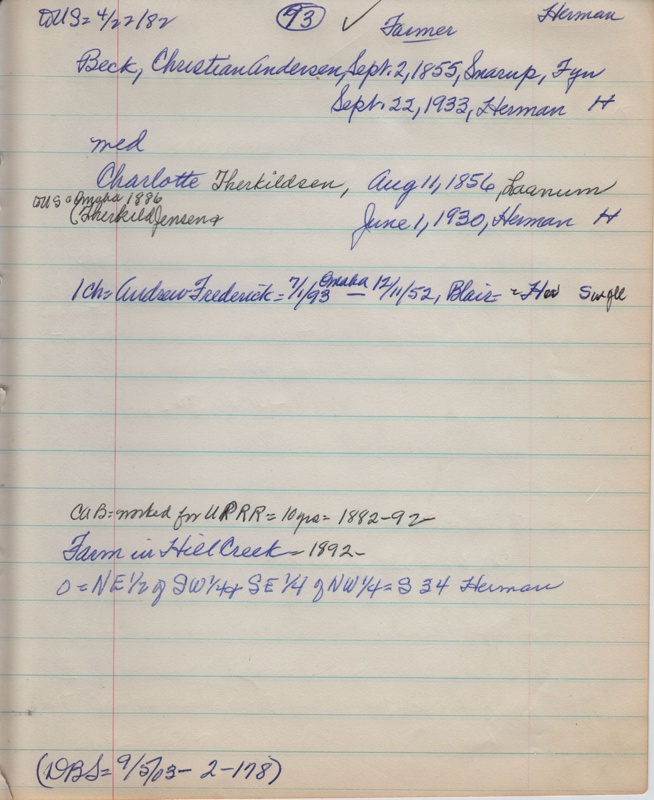 DUS = 4/22/82 (93) ✓ Farmer Herman
Beck, Christian Andersen, Sept. 2, 1855, Snarup, Fyn
Sept. 22, 1933, Herman H
med
Charlotte Therkildsen, Aug 11, 1856, Loanum
DUS = Omaha 1886
(Therkild Jensen June 1, 1930, Herman H
1 ch = Andrew Frederick = 7/1/93 Omaha — 12/11/52, Blair = Her Single
CAB = worked for UPRR = 10 yrs = 1882-92
Farm in Hill Creek - 1892-
O = NE 1/2 of SW 1/4 + SE 1/4 of NW 1/4 = S 34 Herman
(DBS = 9/5/03 - 2-178)